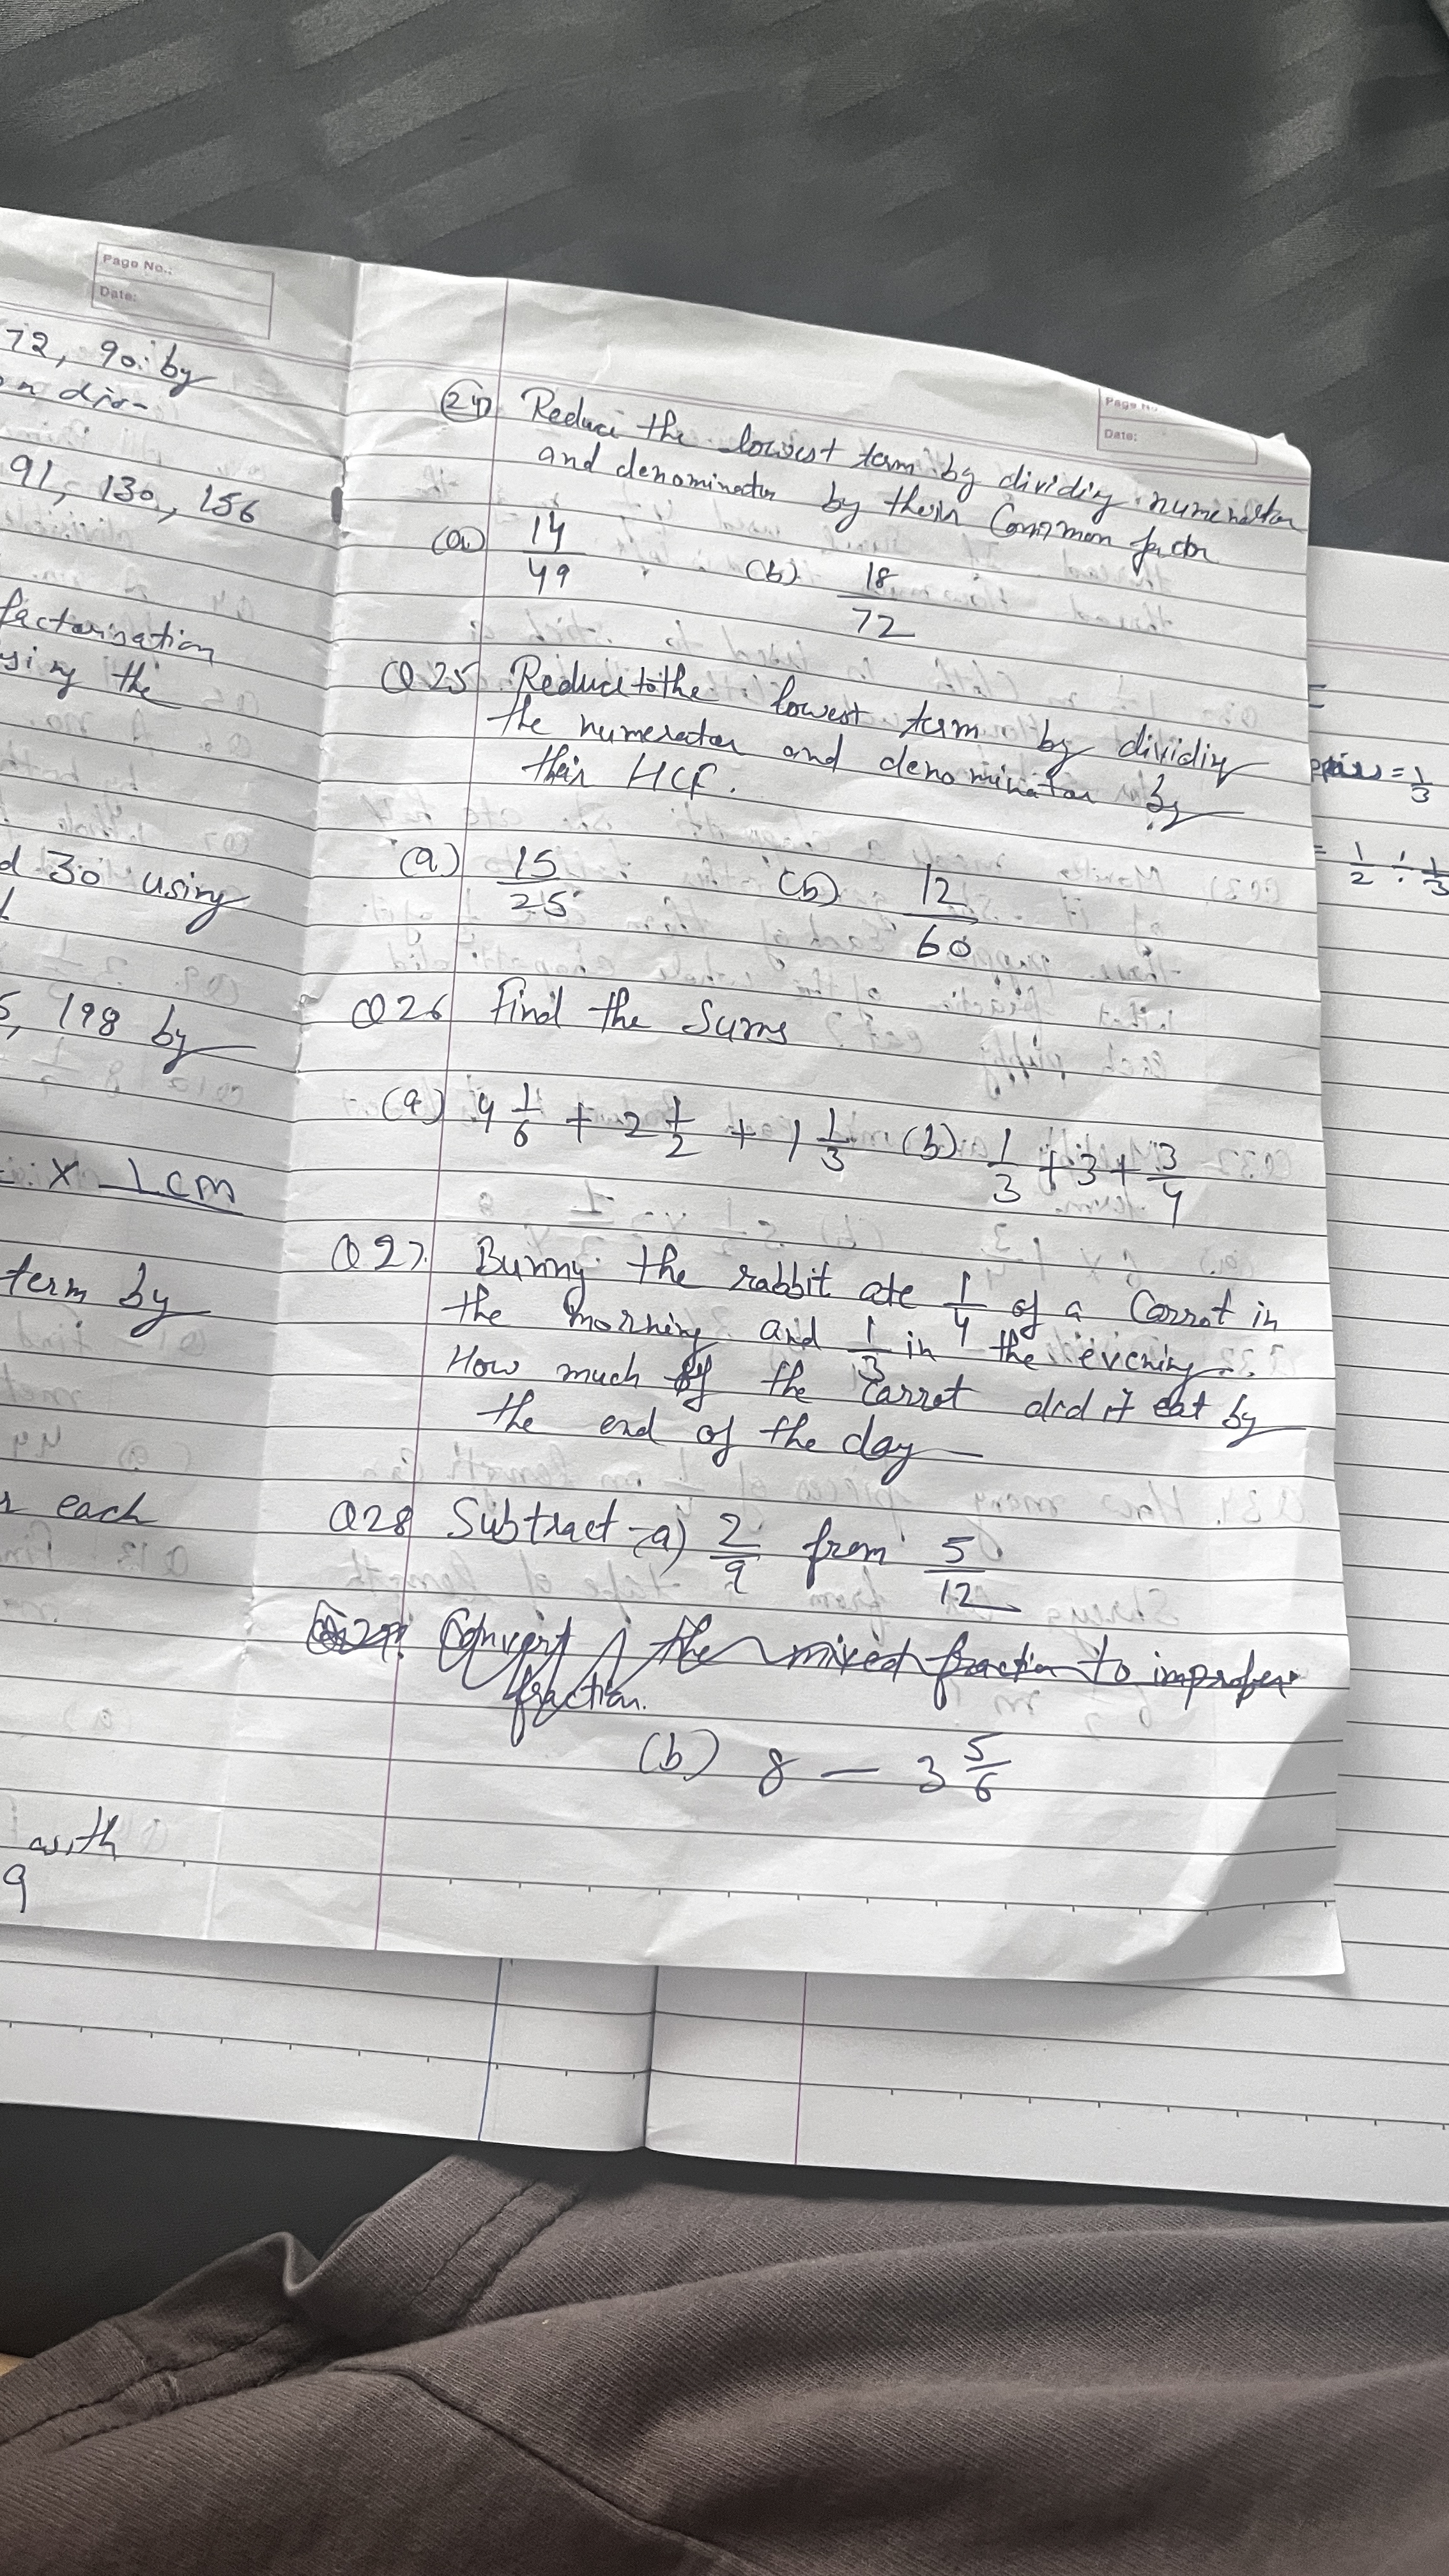 Page No.:
Date:
72, 90. by
on divi-
91, 130, 156
factorisation
using the
d 30 using
5, 198 by
X 1 cm
term by
r each
with
9
Page No
Date:
24) Reduce the lowest term by dividing numerator
and denominator by their Common factor
(a) 14/49 (b) 18/72
Q25 Reduce to the lowest term by dividing
the numerator and denominator by
their HCF.
(a) 15/25 (b) 12/60
Q26 Find the Sums
(a) 4 1/6 + 2 1/2 + 1 1/3 (b) 1/3 + 3 + 3/4
Q27. Bunny the rabbit ate 1/4 of a Carrot in
the morning and 1/3 in the evening.
How much of the Carrot did it eat by
the end of the day
Q28 Subtract - a) 2/9 from 5/12
Convert the mixed fraction to improper
fraction.
(b) 8 - 3 5/6
= 1/3
= 1/2 ÷ 1/3